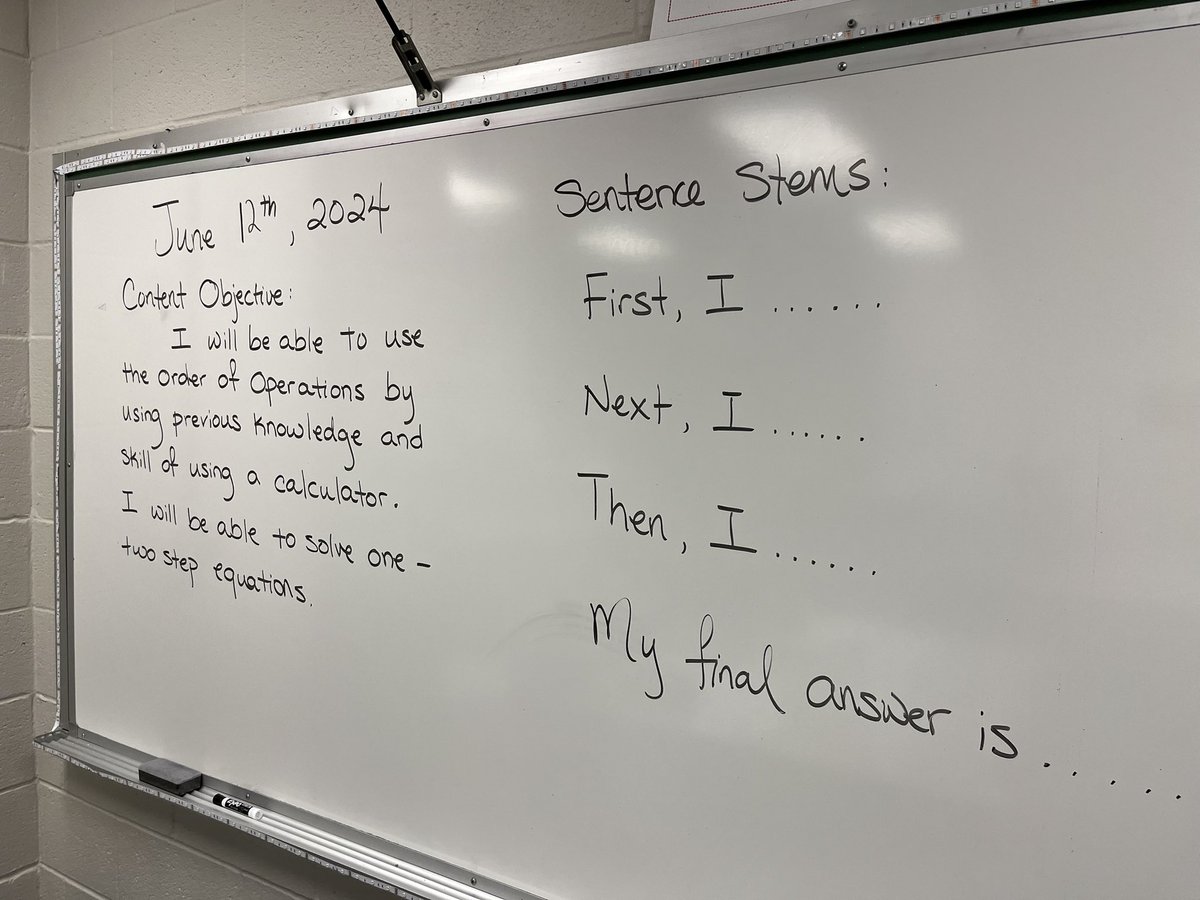 June 12th, 2024
Content Objective:
I will be able to use
the order of Operations by
using previous knowledge and
skill of using a calculator.
I will be able to solve one-
two step equations.
Sentence Stems:
First, I ......
Next, I ......
Then, I ......
My final answer is .....